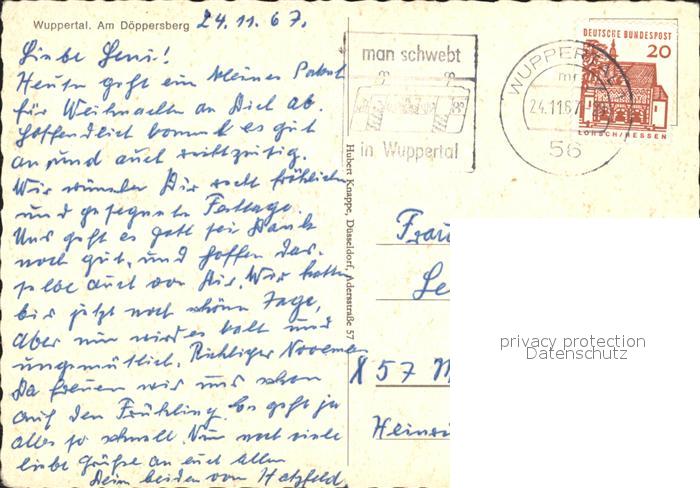 Wuppertal. Am Döppersberg
24.11.67.
Liebe Leni!
Heute geht ein kleines Paket
für Weihnachten an Dich ab.
Hoffentlich kommt es gut
an und auch rechtzeitig.
Wir wünschen Dir recht fröhliche
und gesegnete Festtage.
Uns geht es gott sei Dank
noch gut, und hoffen das-
selbe auch von Dir. Wir hatten
bis jetzt noch schöne Tage,
aber nun wird es kalt und
ungemütlich. Richtiger November
Da freuen wir uns schon
auf den Frühling. Es geht ja
alles so schnell. Nun noch viele
liebe Grüße an euch allen
Deine beiden vom Hatzfeld
Hubert Knappe, Düsseldorf, Adersstraße 57
man schwebt
in Wuppertal
WUPPERTAL
mr
24.11.67
56
DEUTSCHE BUNDESPOST
20
LORSCH/HESSEN
Frau
Le
57 M
Heinri
privacy protection
Datenschutz